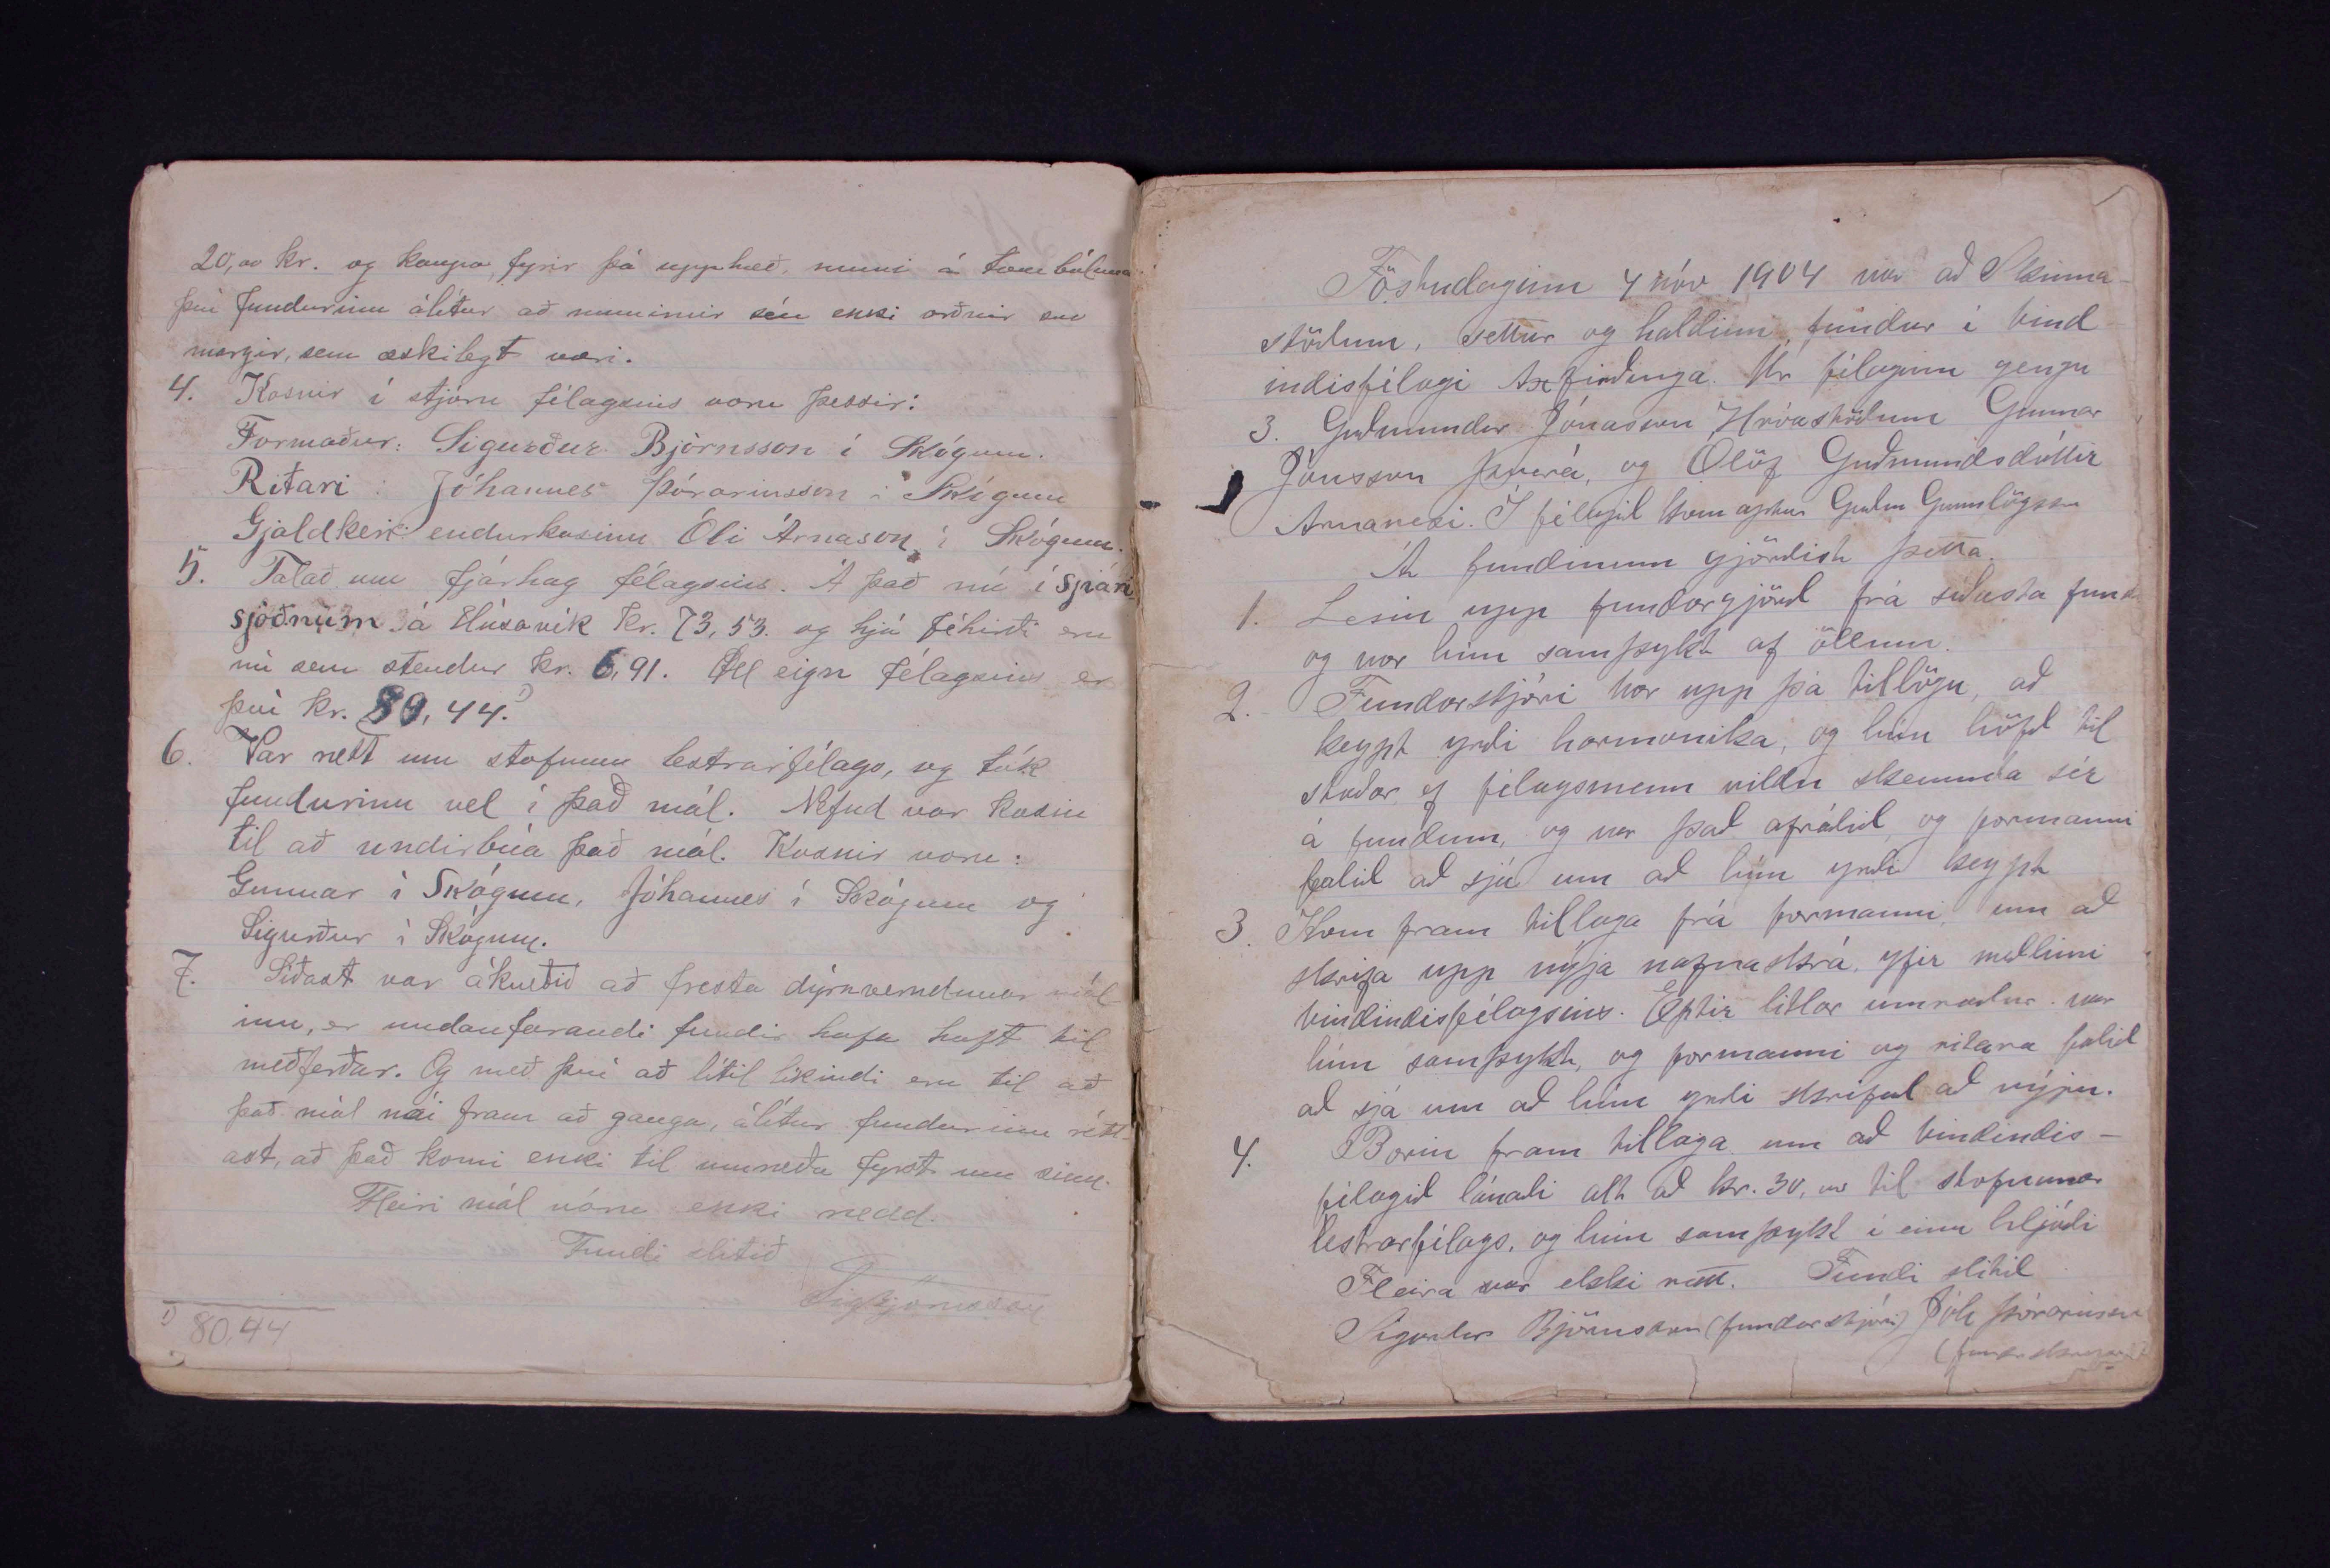 20,00 kr. og kaupa, fyrir þá upphæð, muni á tombóluna
því fundurinn álítur að munirnir séu enki orðnir svo
margir, sem æskilegt væri.
4. Kosnir í stjórn félagsins voru þessir:
Formaður: Sigurður Björnsson í Skógum.
Ritari: Jóhannes Þórarinsson í Skógum
Gjaldkeri endurkosinn Óli Árnason í Skógum.
5. Talað um fjárhag félagsins. Á það nú í Spari
sjóðnum á Húsavík kr. 73,53. og hjá féhirði eru
nú sem stendur kr. 6,91. Öll eign félagsins er
því kr. 80,44.¹⁾
6. Var rætt um stofnun lestrarfélags, og tók
fundurinn vel í það mál. Nefnd var kosin
til að undirbúa það mál. Kosnir voru:
Gunnar í Skógum, Jóhannes í Skógum og
Sigurður í Skógum.
7. Síðast var ákveðið að fresta dýraverndunar mál-
inu, er undanfarandi fundir hafa haft til
meðferðar. Og með því að lítil líkindi eru til að
það mál nái fram að ganga, álítur fundurinn rétt-
ast, að það komi enki til umræðu fyrst um sinn.
Fleiri mál vóru enki rædd.
Fundi slitið
SigBjörnsson
1) 80,44
Föstudaginn 4 nóv 1904 var að Skinna-
stöðum, settur og haldinn, fundur í bind
indisfélagi Axfirðinga. Úr félaginu gengu
3. Guðmundur Jónasson Hróastöðum Gunnar
Jónsson Þverá, og Ólöf Guðmundsdóttir
Arnanesi. Í félagið kom aptur Guðm Gunnlögsson
Á fundinum gjörðist þetta.
1. Lesin upp fundargjörð frá síðasta fundi
og var hún samþykt af öllum.
2. Fundarstjóri bar upp þá tillögu, að
keypt yrði harmonika, og hún höfð til
staðar ef félagsmenn vildu skemmta sér
á fundum, og var það afráðið, og formanni
falið að sjá um að hún yrði keypt
3. Kom fram tillaga frá formanni, um að
skrifa upp nýja nafnaskrá, yfir meðlimi
bindindisfélagsins. Eptir litlar umræður var
hún samþykt, og formanni og ritara falið
að sjá um að hún yrði skrifuð að nýju.
4. Borin fram tillaga um að bindindis-
félagið lánaði alt að kr. 30,00 til stofnunar
lestrarfélags, og hún samþykt í einu hljóði
Fleira var ekki rætt. Fundi slitið
Sigurður Björnsson (fundarstjóri) Jóh Þórarinsson
(fundarskrifari)